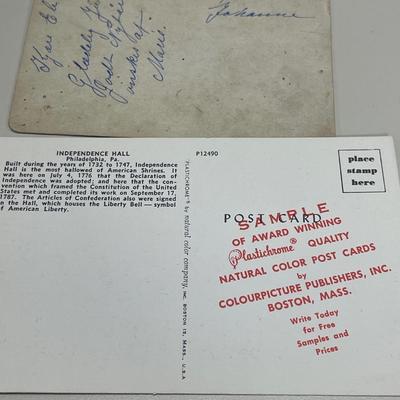 Kære
Glædelig
Godt Nytår
ønskes af
Marie.
Johanne
INDEPENDENCE HALL
Philadelphia, Pa.
Built during the years of 1732 to 1747, Independence
Hall is the most hallowed of American Shrines. It
was here on July 4, 1776 that the Declaration of
Independence was adopted; and here that the con-
vention which framed the Constitution of the United
States met and completed its work on September 17,
1787. The Articles of Confederation also were signed
in the Hall, which houses the Liberty Bell — symbol
of American Liberty.
P12490
"PLASTICHROME" ® by natural color company, INC. BOSTON 15, MASS., U.S.A.
place
stamp
here
POST CARD
SAMPLE
OF AWARD WINNING
Plastichrome® QUALITY
NATURAL COLOR POST CARDS
by
COLOURPICTURE PUBLISHERS, INC.
BOSTON, MASS.
Write Today
for Free
Samples and
Prices